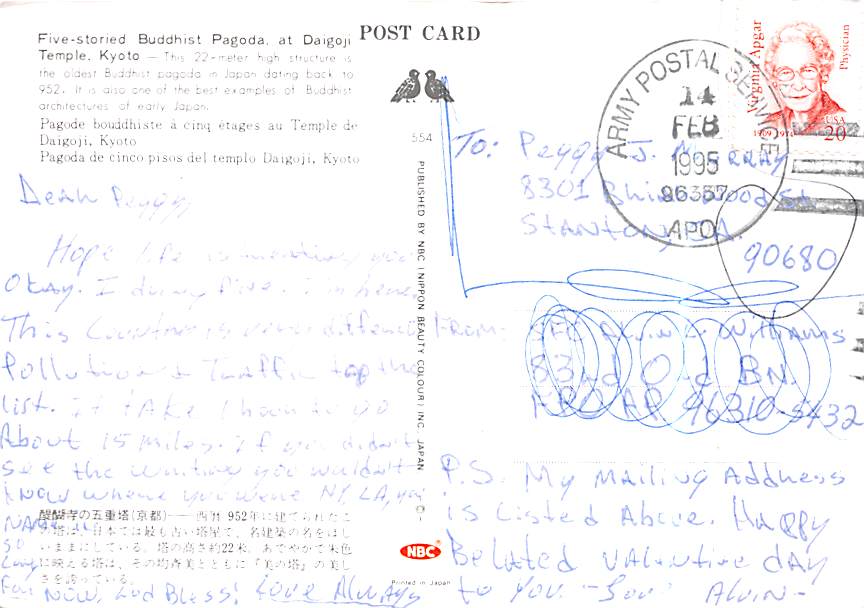 Five-storied Buddhist Pagoda, at Daigoji
Temple, Kyoto — This 22-meter high structure is
the oldest Buddhist pagoda in Japan dating back to
952. It is also one of the best examples of Buddhist
architectures of early Japan.
Pagode bouddhiste à cinq étages au Temple de
Daigoji, Kyoto
Pagoda de cinco pisos del templo Daigoji, Kyoto
Dear Peggy,
Hope life is treating you
Okay. I doing fine. I'm here
This Country is very different
Pollution & Traffic top the
list. It take 1 hour to go
About 15 miles. If you didn't
see the writing you wouldn't
know where you were NY, LA, you
NAME it.
So
Long
For NOW, God Bless! Love Always
醍醐寺の五重塔(京都)——西暦952年に建てられたこ
の塔は、日本では最も古い塔屋で、名建築の名をほし
いままにしている。塔の高さ約22米、あでやかで朱色
に映える塔は、その均斉美とともに『美の塔』の美し
さを誇っている。
POST CARD
554
PUBLISHED BY NBC (NIPPON BEAUTY COLOUR) INC. JAPAN
NBC
Printed in Japan
Virginia Apgar
Physician
1909-1974
USA
20
ARMY POSTAL SERVICE
14
FEB
1995
96357
APO
To: Peggy J. Murray
8301 Wood St
Stanton, CA.
90680
From: SFC Alvin Williams
83rd Ord BN.
APO AP 96310-5432
P.S. My Mailing Address
is Listed Above. Happy
Belated Valentine day
to You. Alvin-